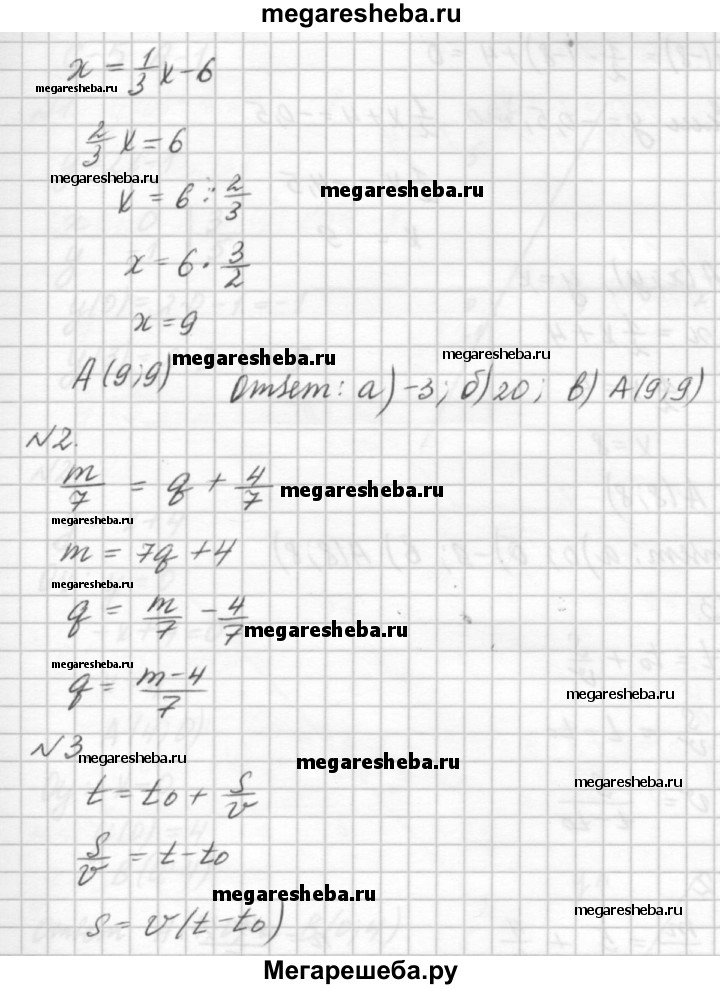 megaresheba.ru
x = 1/3 x - 6
megaresheba.ru
2/3 x = 6
megaresheba.ru
x = 6 : 2/3
megaresheba.ru
x = 6 · 3/2
x = 9
megaresheba.ru
megaresheba.ru
A(9;9) Ответ: а) -3; б) 20; в) A(9;9)
№2.
m/7 = q + 4/7
megaresheba.ru
megaresheba.ru
m = 7q + 4
megaresheba.ru
q = m/7 - 4/7
megaresheba.ru
megaresheba.ru
q = (m-4)/7
megaresheba.ru
№3
megaresheba.ru
megaresheba.ru
t = t0 + s/v
megaresheba.ru
s/v = t - t0
megaresheba.ru
s = v(t - t0)
megaresheba.ru
Мегарешеба.ру